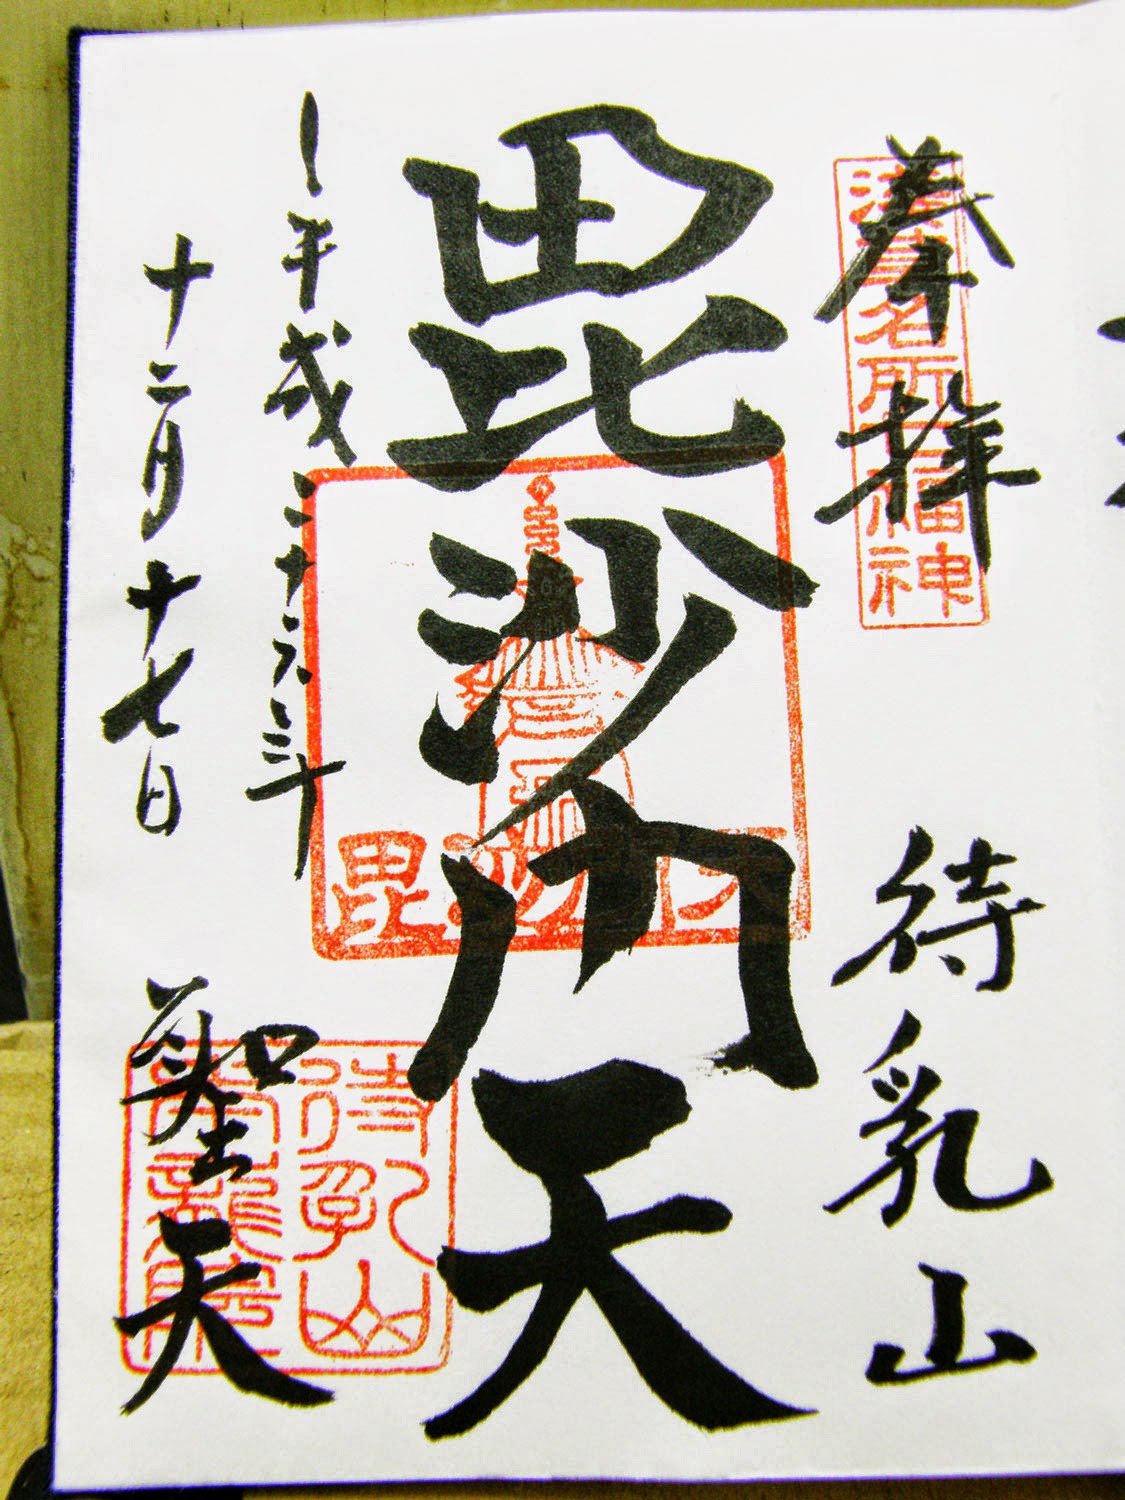 奉拝
待乳山
浅草名所七福神
毘沙門天
毘沙門天
平成二十六年
十二月十七日
聖天
待乳山